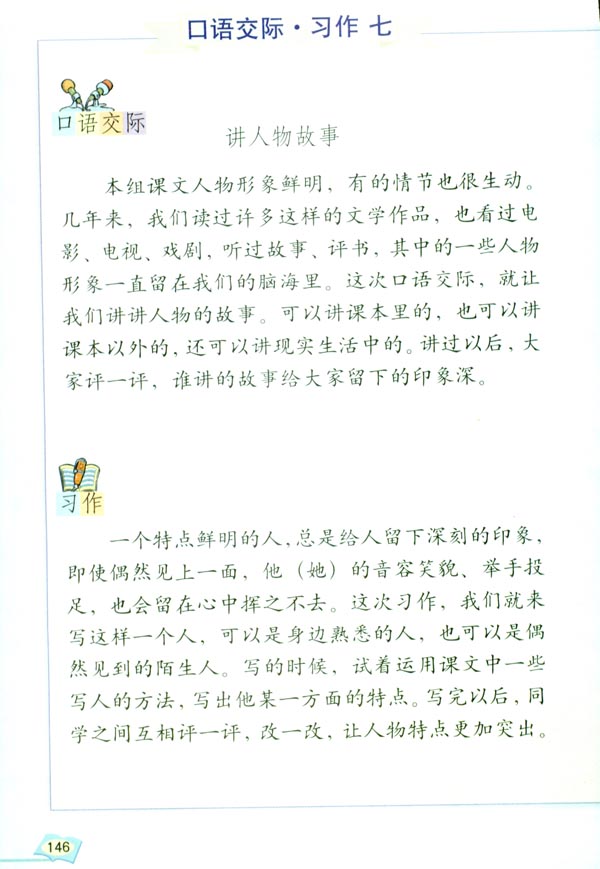 口语交际·习作 七
口语交际
讲人物故事
本组课文人物形象鲜明，有的情节也很生动。
几年来，我们读过许多这样的文学作品，也看过电
影、电视、戏剧，听过故事、评书，其中的一些人物
形象一直留在我们的脑海里。这次口语交际，就让
我们讲讲人物的故事。可以讲课本里的，也可以讲
课本以外的，还可以讲现实生活中的。讲过以后，大
家评一评，谁讲的故事给大家留下的印象深。
习作
一个特点鲜明的人，总是给人留下深刻的印象，
即使偶然见上一面，他（她）的音容笑貌、举手投
足，也会留在心中挥之不去。这次习作，我们就来
写这样一个人，可以是身边熟悉的人，也可以是偶
然见到的陌生人。写的时候，试着运用课文中一些
写人的方法，写出他某一方面的特点。写完以后，同
学之间互相评一评，改一改，让人物特点更加突出。
146